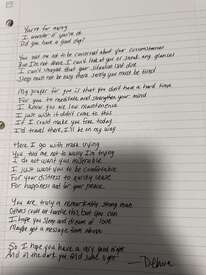 You're far away
I wonder if you're ok
Did you have a good day?
You told me not to be concerned about your circumstances
But I'm not there, I can't look at you or sneak any glances
I can't imagine that your situation
Sleep must not be easy there, surely you must be tired
My prayer for you is that you don't have a hard time
For you to meditate and strengthen your mind
I know you are low maintenance
I just wish it didn't come to this
If I could make you free today
I'd travel there, I'll be on my way
Here I go with mask crying
You told me not to worry I'm trying
I do not want you miserable
I just want you to be comfortable
For your distress to quickly cease
For happiness and for your peace
You are truly a remarkably strong man
Others could not handle this, but you can
I hope you sleep and dream of love
Maybe get a message from above
So I hope you have a very good night
And in the dark you find some light